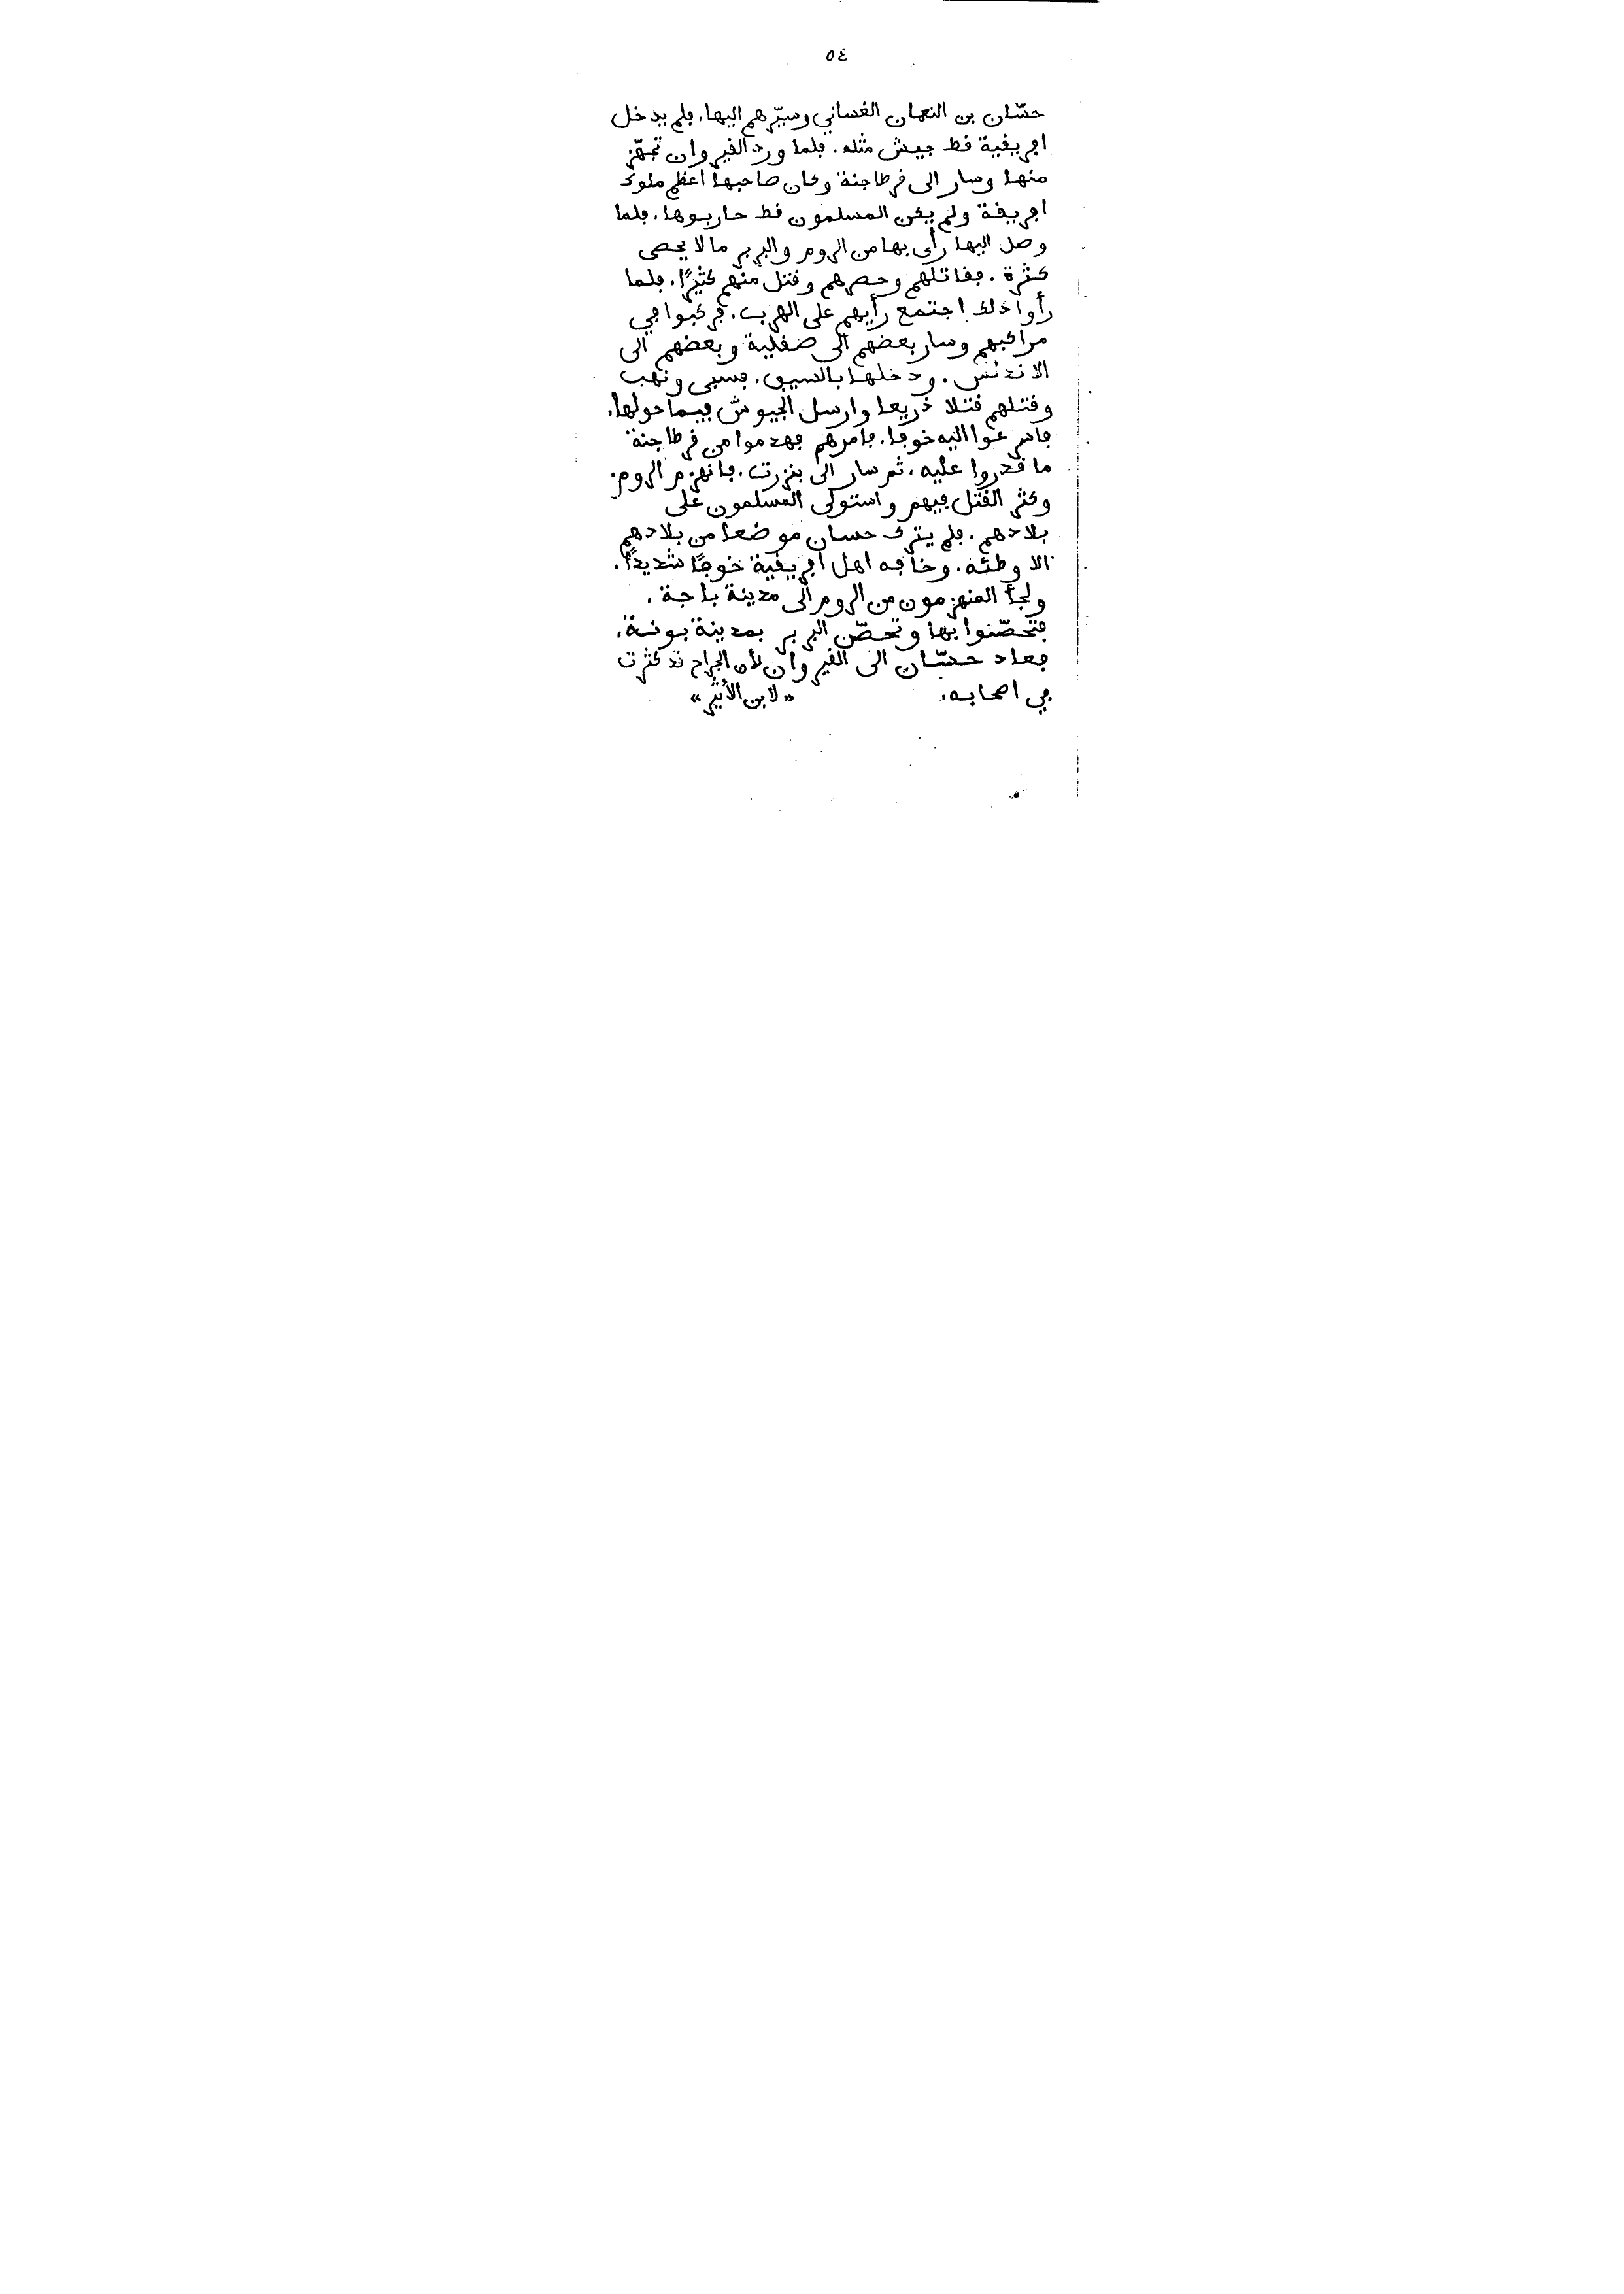 ٥٤
حسّان بن النعمان الغساني وسيّرهم اليها. فلم يدخل
افريقية قط جيش مثله. فلما ورد القيروان تجهّز
منها وسار الى قرطاجنة وكان صاحبها اعظم ملوك
افريقة ولم يكن المسلمون قط حاربوها. فلما
وصل اليها رأى بها من الروم والبربر ما لا يحصى
كثرة. فقاتلهم وحصرهم وقتل منهم كثيرًا. فلما
رأوا ذلك اجتمع رأيهم على الهرب. فركبوا في
مراكبهم وسار بعضهم الى صقلية وبعضهم الى
الاندلس. ودخلها بالسيف. فسبى ونهب
وقتلهم قتلا ذريعا وارسل الجيوش فيما حولها.
فاسرعوا اليه خوفا. فامرهم فهدموا من قرطاجنة
ما قدروا عليه. ثم سار الى بنزرت. فانهزم الروم.
وكثر القتل فيهم واستولى المسلمون على
بلادهم. فلم يترك حسان موضعا من بلادهم
الا وطئه. وخافه اهل افريقية خوفًا شديدًا.
ولجأ المنهزمون من الروم الى مدينة باجة.
فتحصّنوا بها وتحصّن البربر بمدينة بونة.
فعاد حسّان الى القيروان لأن الجراح قد كثرت
في اصحابه. «لابن الأثير»